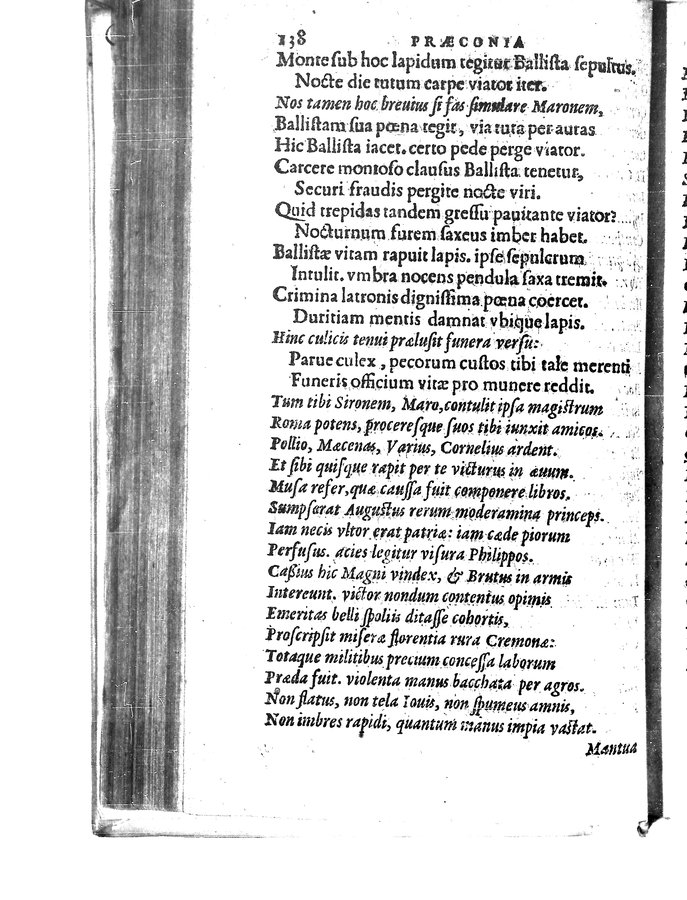 138 PRÆCONIA
Monte ſub hoc lapidum tegitur Balliſta ſepultus.
Nocte die tutum carpe viator iter.
Nos tamen hoc breuius ſi fas ſimulare Maronem,
Balliſtam ſua pœna tegit, via tuta per auras
Hic Balliſta iacet. certo pede perge viator.
Carcere montoſo clauſus Balliſta tenetur,
Securi fraudis pergite nocte viri.
Quid trepidas tandem greſſu pauitante viator?
Nocturnum furem ſaxeus imber habet.
Balliſtæ vitam rapuit lapis. ipſe ſepulcrum
Intulit. vmbra nocens pendula ſaxa tremit.
Crimina latronis digniſſima pœna coercet.
Duritiam mentis damnat vbique lapis.
Hinc culicis tenui præluſit funera verſu:
Parue culex, pecorum cuſtos tibi tale merenti
Funeris officium vitæ pro munere reddit.
Tum tibi Sironem, Maro, contulit ipſa magiſtrum
Roma potens, procereſque ſuos tibi iunxit amicos.
Pollio, Mæcenas, Varius, Cornelius ardent.
Et ſibi quiſque rapit per te victurus in æuum.
Muſa refer, quæ cauſſa fuit componere libros.
Sumpſerat Auguſtus rerum moderamina princeps.
Iam necis vltor erat patriæ: iam cæde piorum
Perfuſus. acies legitur viſura Philippos.
Caſsius hic Magni vindex, & Brutus in armis
Intereunt. victor nondum contentus opimis
Emeritas belli ſpoliis ditaſſe cohortis,
Proſcripſit miſeræ florentia rura Cremonæ:
Totaque militibus precium conceſſa laborum
Præda fuit. violenta manus bacchata per agros.
Non flatus, non tela Iouis, non ſpumeus amnis,
Non imbres rapidi, quantum manus impia vaſtat.
Mantua